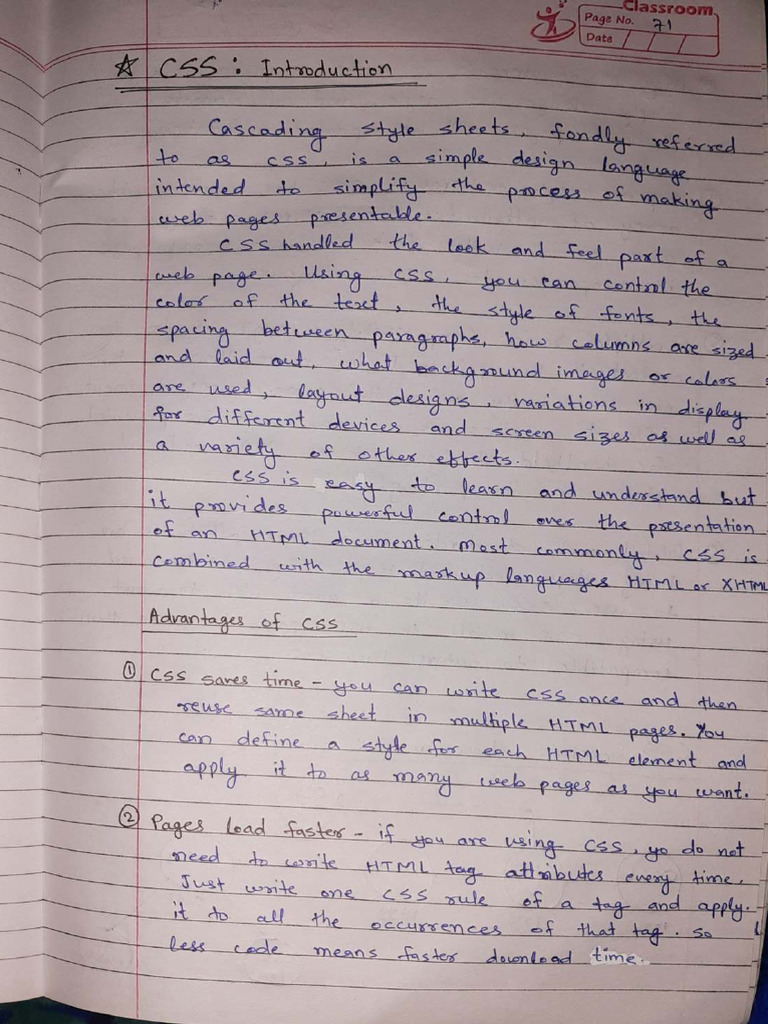 Classroom
Page No. 71
Date
☆ CSS : Introduction
Cascading style sheets, fondly referred
to as CSS, is a simple design language
intended to simplify the process of making
web pages presentable.
CSS handled the look and feel part of a
web page. Using CSS, you can control the
color of the text, the style of fonts, the
spacing between paragraphs, how columns are sized
and laid out, what background images or colors
are used, layout designs, variations in display
for different devices and screen sizes as well as
a variety of other effects.
CSS is easy to learn and understand but
it provides powerful control over the presentation
of an HTML document. Most commonly, CSS is
combined with the markup languages HTML or XHTML
Advantages of CSS
① CSS saves time - you can write CSS once and then
reuse same sheet in multiple HTML pages. You
can define a style for each HTML element and
apply it to as many web pages as you want.
② Pages load faster - if you are using CSS, yo do not
need to write HTML tag attributes every time.
Just write one CSS rule of a tag and apply.
it to all the occurrences of that tag. so
less code means faster download time.